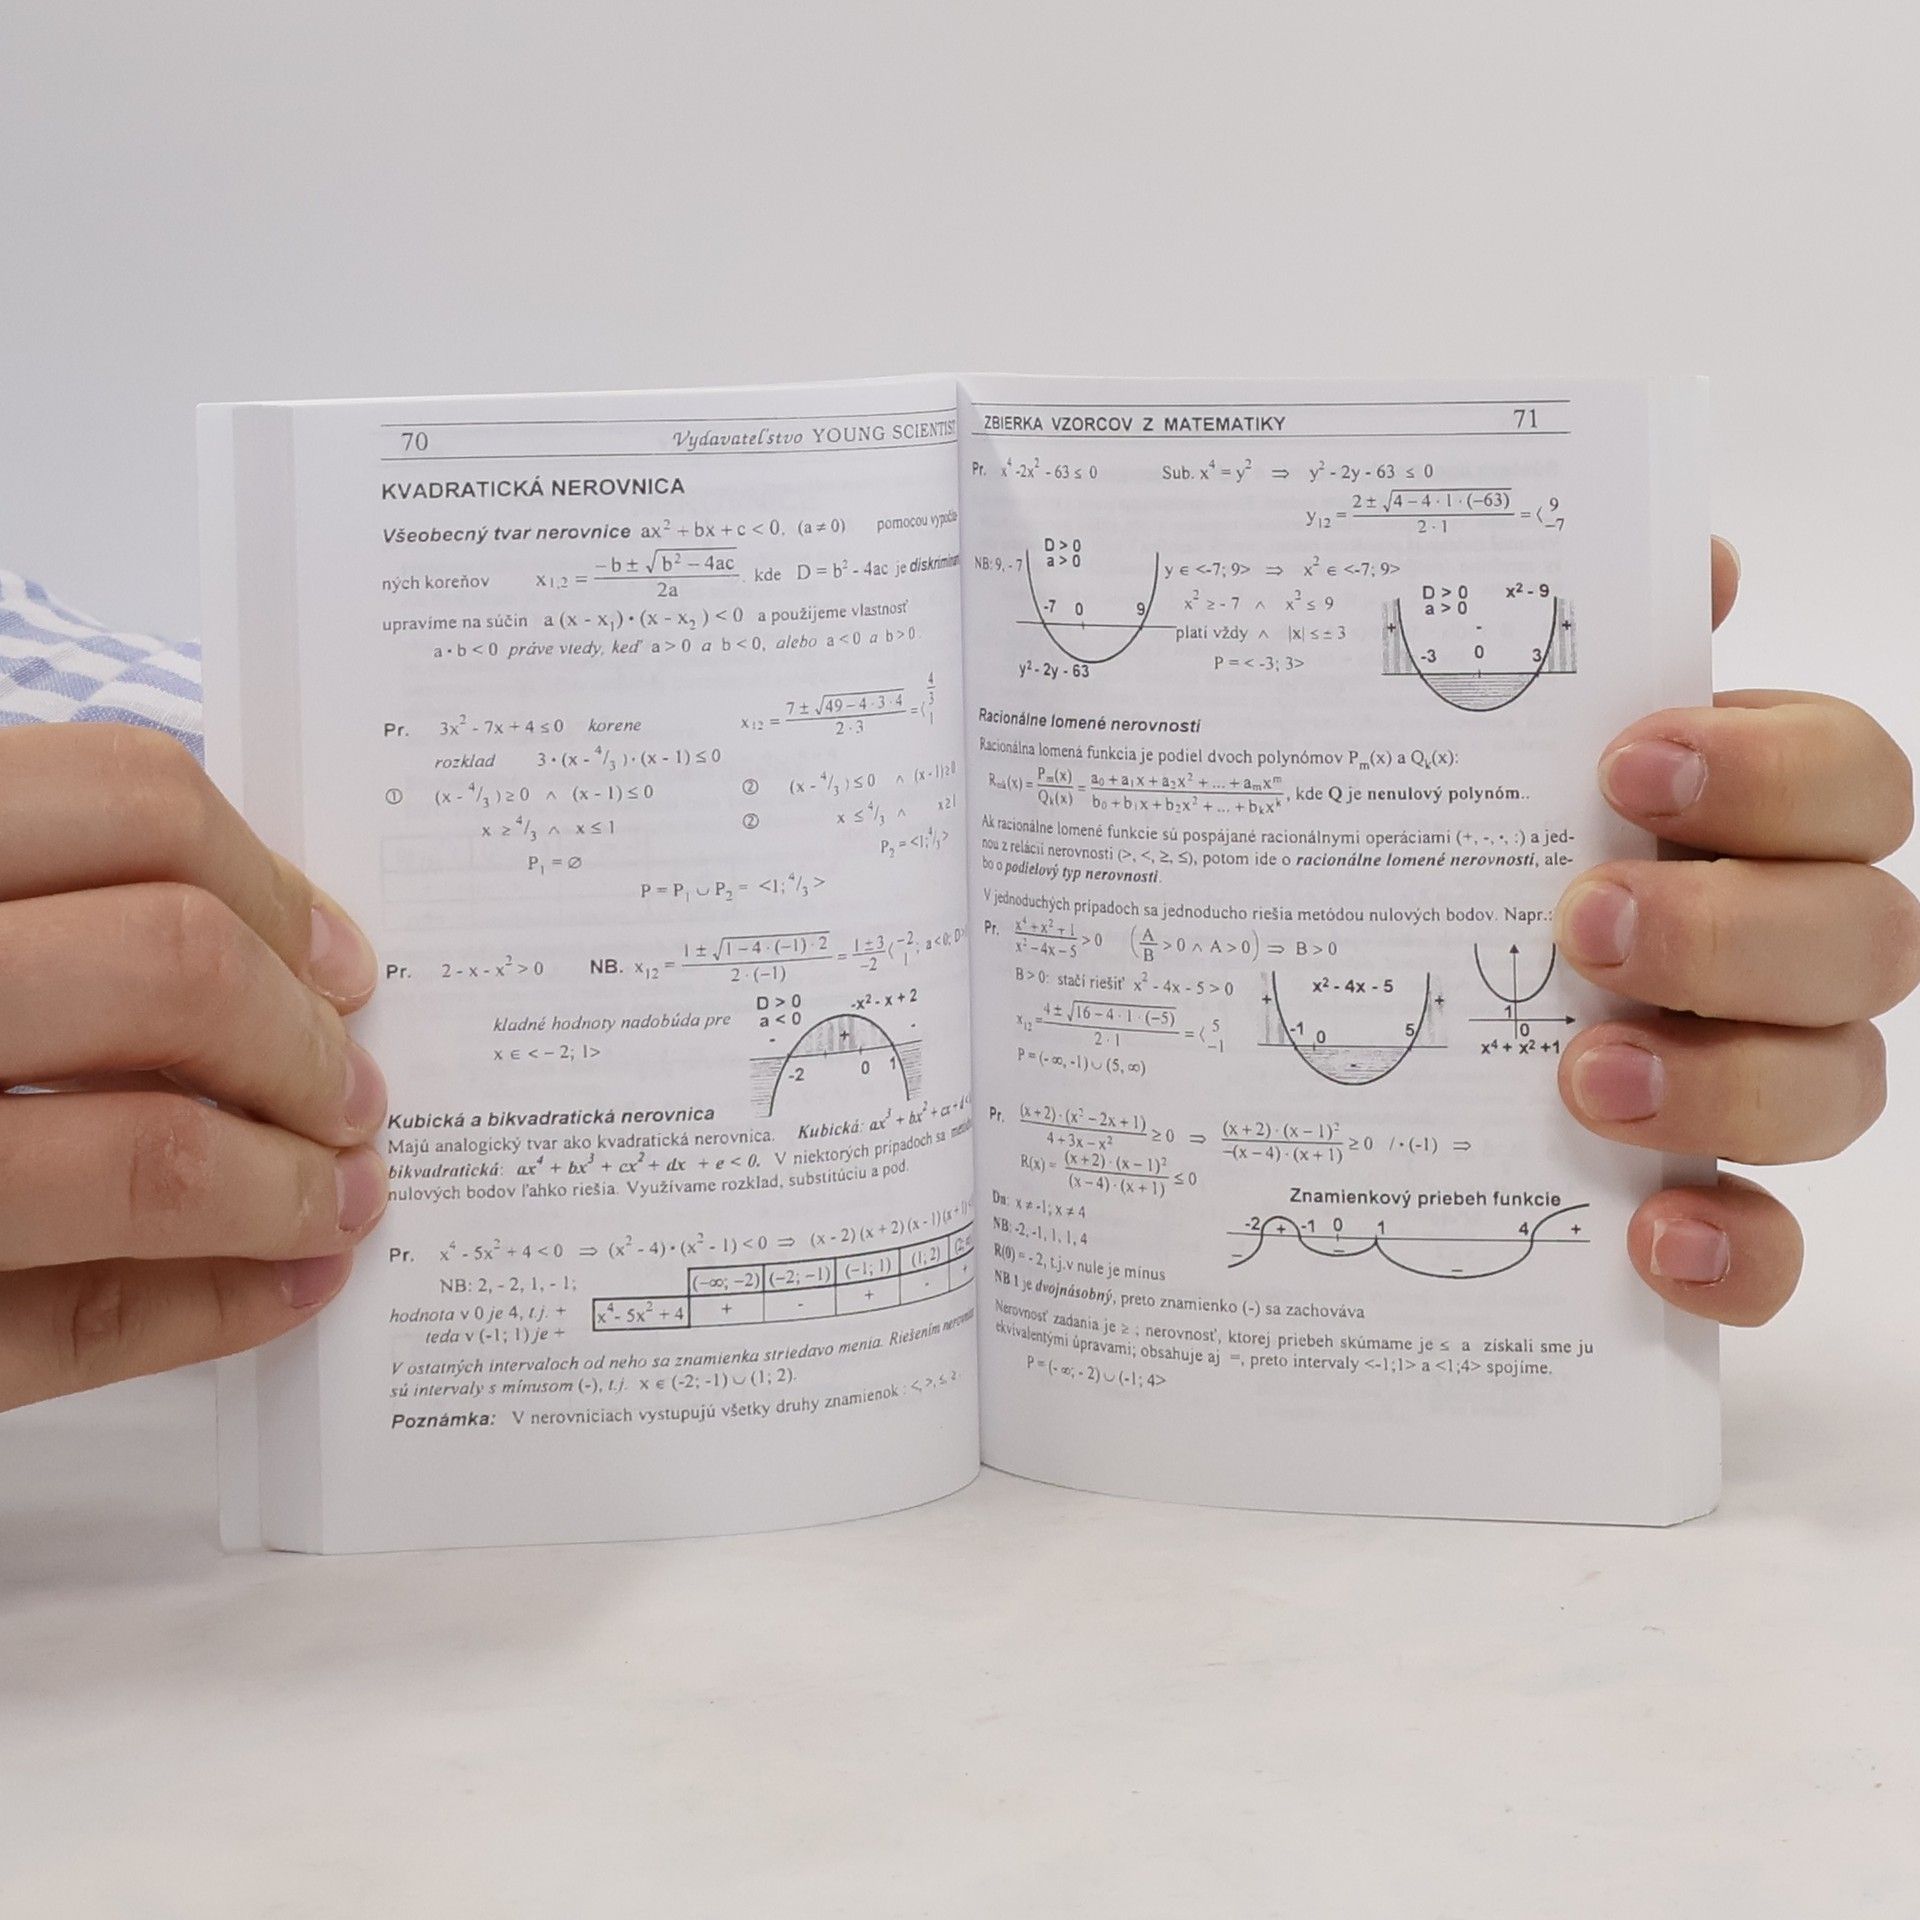 70 Vydavateľstvo YOUNG SCIENTIST
KVADRATICKÁ NEROVNICA
Všeobecný tvar nerovnice ax² + bx + c < 0, (a ≠ 0) pomocou vypočíta-
ných koreňov x₁,₂ = (-b ± √(b² − 4ac))/(2a), kde D = b² - 4ac je diskriminant
upravíme na súčin a (x - x₁) • (x - x₂) < 0 a použijeme vlastnosť
a • b < 0 práve vtedy, keď a > 0 a b < 0, alebo a < 0 a b > 0.
Pr. 3x² - 7x + 4 ≤ 0 korene x₁₂ = (7 ± √(49 − 4·3·4))/(2·3) = ⟨ 4/3 1
rozklad 3 • (x - ⁴/₃) • (x - 1) ≤ 0
① (x - ⁴/₃) ≥ 0 ∧ (x - 1) ≤ 0 ② (x - ⁴/₃) ≤ 0 ∧ (x - 1) ≥ 0
x ≥ ⁴/₃ ∧ x ≤ 1 ② x ≤ ⁴/₃ ∧ x ≥ 1
P₁ = ∅ P₂ = <1; ⁴/₃>
P = P₁ ∪ P₂ = <1; ⁴/₃>
Pr. 2 - x - x² > 0 NB. x₁₂ = (1 ± √(1 − 4·(−1)·2))/(2·(−1)) = (1 ± 3)/(-2) ⟨ -2 1 ; a < 0; D >
D > 0 -x² - x + 2
kladné hodnoty nadobúda pre a < 0 - + -
x ∈ < - 2; 1>
-2 0 1
Kubická a bikvadratická nerovnica
Majú analogický tvar ako kvadratická nerovnica. Kubická: ax³ + bx² + cx + d <
bikvadratická: ax⁴ + bx³ + cx² + dx + e < 0. V niektorých prípadoch sa
nulových bodov ľahko riešia. Využívame rozklad, substitúciu a pod.
Pr. x⁴ - 5x² + 4 < 0 ⇒ (x² - 4) • (x² - 1) < 0 ⇒ (x - 2) (x + 2) (x - 1) (x + 1) <
NB: 2, - 2, 1, - 1; (−∞; −2) (−2; −1) (−1; 1) (1; 2) (2;
hodnota v 0 je 4, t.j. + x⁴ - 5x² + 4 + - + - +
teda v (-1; 1) je +
V ostatných intervaloch od neho sa znamienka striedavo menia. Riešením
sú intervaly s mínusom (-), t.j. x ∈ (-2; -1) ∪ (1; 2).
Poznámka: V nerovniciach vystupujú všetky druhy znamienok : <, >, ≤, ≥.
ZBIERKA VZORCOV Z MATEMATIKY 71
Pr. x⁴ -2x² - 63 ≤ 0 Sub. x⁴ = y² ⇒ y² - 2y - 63 ≤ 0
y₁₂ = (2 ± √(4 − 4·1·(−63)))/(2·1) = ⟨ 9 −7
D > 0
NB: 9, - 7 a > 0 y ∈ <-7; 9> ⇒ x² ∈ <-7; 9>
D > 0 x² - 9
a > 0
-7 0 9 x² ≥ - 7 ∧ x² ≤ 9
platí vždy ∧ |x| ≤ ± 3 + - +
y² - 2y - 63 P = < -3; 3> -3 0 3
Racionálne lomené nerovnosti
Racionálna lomená funkcia je podiel dvoch polynómov Pₘ(x) a Qₖ(x):
Rₘₖ(x) = Pₘ(x)/Qₖ(x) = (a₀ + a₁x + a₂x² + ... + aₘxᵐ)/(b₀ + b₁x + b₂x² + ... + bₖxᵏ), kde Q je nenulový polynóm..
Ak racionálne lomené funkcie sú pospájané racionálnymi operáciami (+, -, •, :) a jed-
nou z relácií nerovnosti (>, <, ≥, ≤), potom ide o racionálne lomené nerovnosti, ale-
bo o podielový typ nerovnosti.
V jednoduchých prípadoch sa jednoducho riešia metódou nulových bodov. Napr.:
Pr. (x⁴ + x² + 1)/(x² − 4x − 5) > 0 (A/B > 0 ∧ A > 0) ⇒ B > 0
B > 0: stačí riešiť x² - 4x - 5 > 0 + x² - 4x - 5 +
x₁₂ = (4 ± √(16 − 4·1·(−5)))/(2·1) = ⟨ 5 −1
-1 0 5 - 1 0
x⁴ + x² +1
P = (- ∞, -1) ∪ (5, ∞)
Pr. ((x + 2)·(x² − 2x + 1))/(4 + 3x − x²) ≥ 0 ⇒ ((x + 2)·(x − 1)²)/(−(x − 4)·(x + 1)) ≥ 0 / • (-1) ⇒
R(x) = ((x + 2)·(x − 1)²)/((x − 4)·(x + 1)) ≤ 0
Dn: x ≠ -1; x ≠ 4 Znamienkový priebeh funkcie
NB: -2, -1, 1, 1, 4 - -2 + -1 0 - 1 - 4 +
R(0) = - 2, t.j. v nule je mínus
NB 1 je dvojnásobný, preto znamienko (-) sa zachováva
Nerovnosť zadania je ≥ ; nerovnosť, ktorej priebeh skúmame je ≤ a získali sme ju
ekvivalentými úpravami; obsahuje aj =, preto intervaly <-1;1> a <1;4> spojíme.
P = (- ∞; - 2) ∪ (-1; 4>